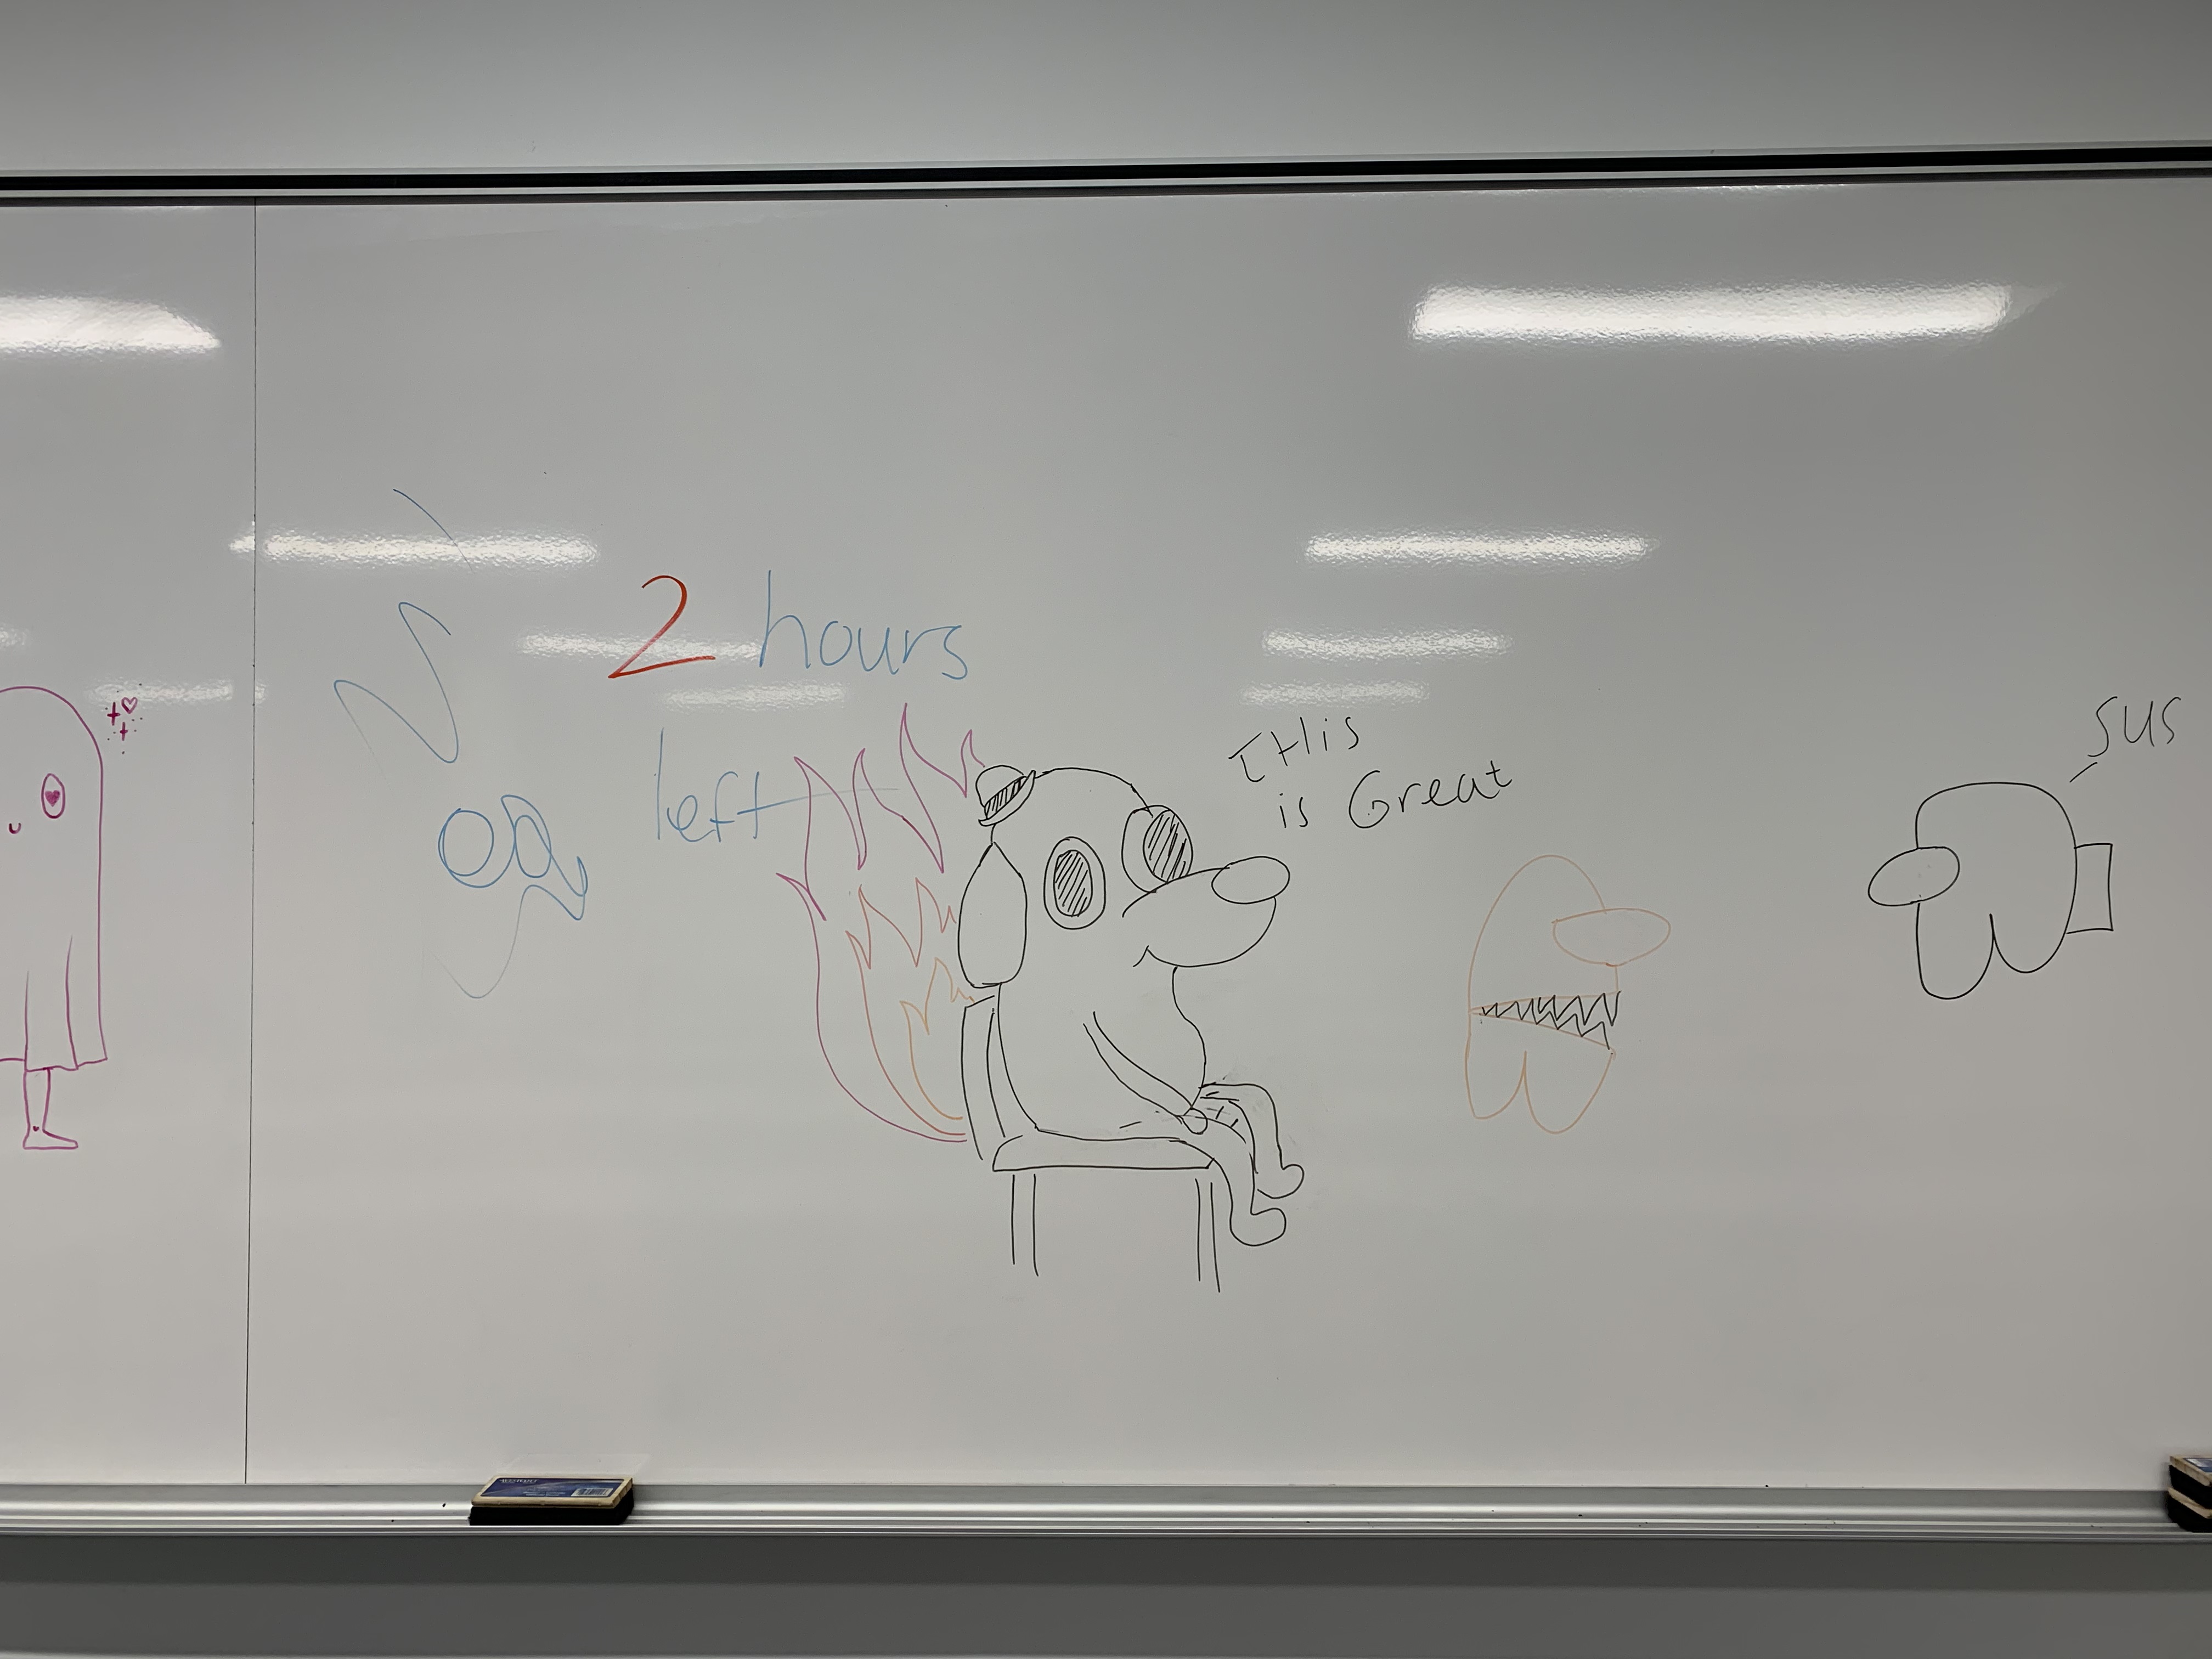 2 hours
left
THis
is Great
sus